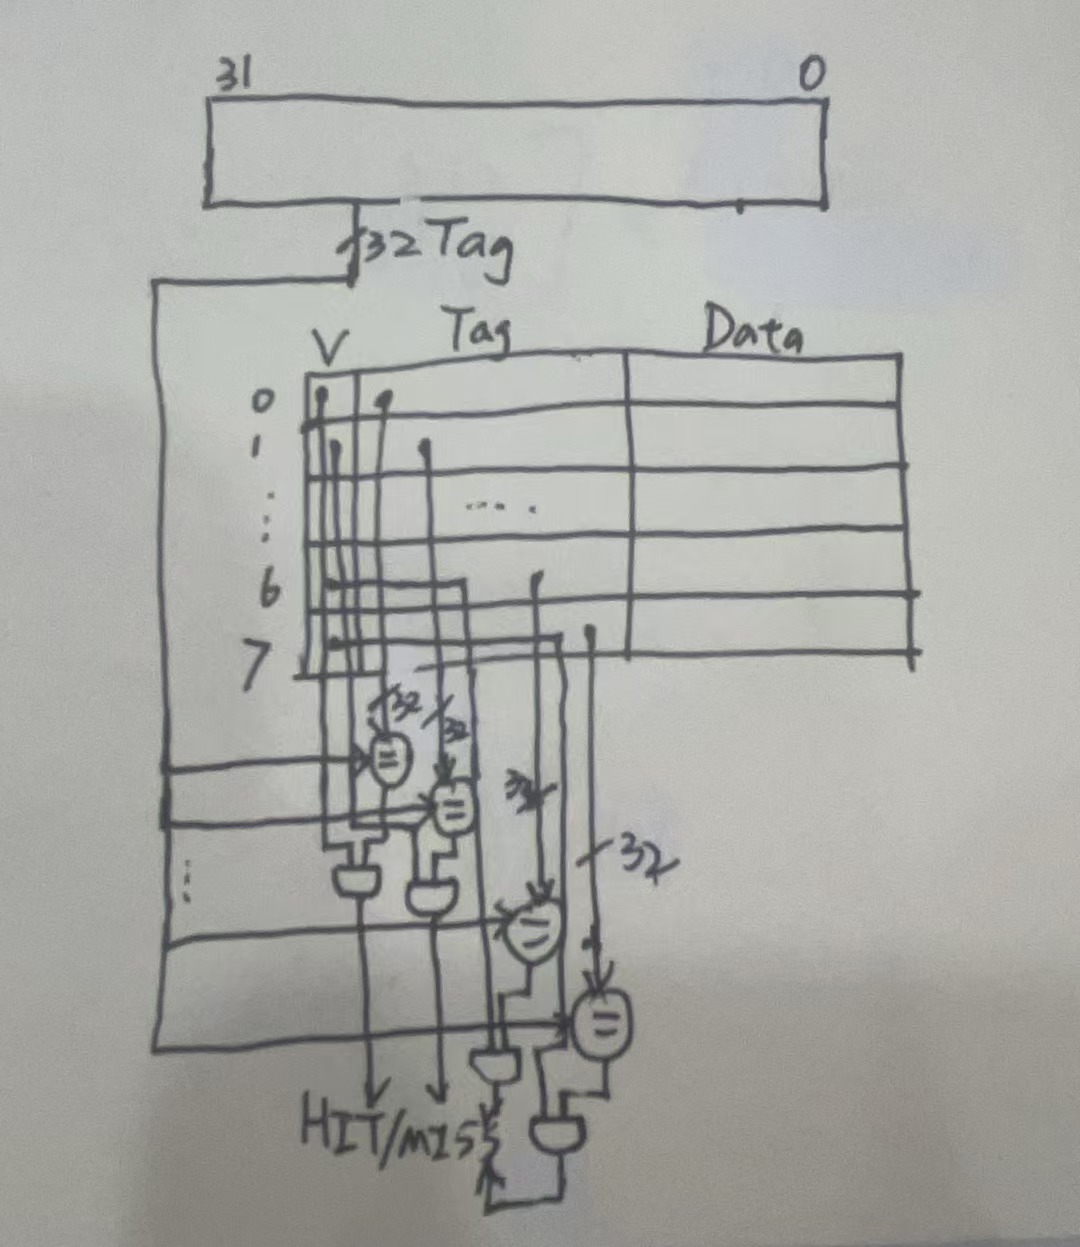 31 0
32 Tag
V Tag Data
0
1
⋮
.... .
6
7
32
32
32
32
=
=
⋮
=
=
HIT/MISS